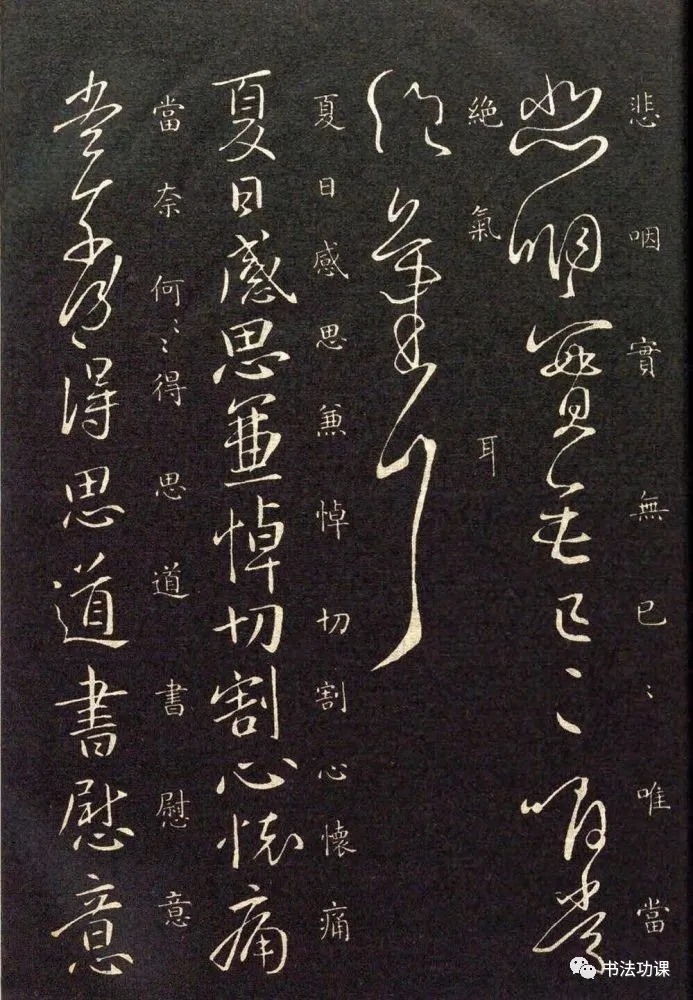 悲咽實無已〻唯當
悲咽實無已〻唯當
絶氣耳
絶氣耳
夏日感思兼悼切割心懷痛
夏日感思兼悼切割心懷痛
當奈何〻〻得思道書慰意
當奈何〻得思道書慰意
书法功课